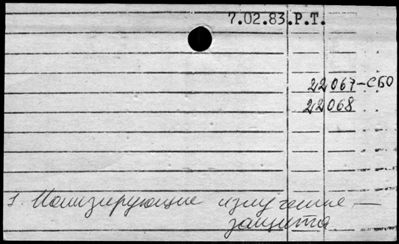 7.02.83.Р.Т.
22067-СБО
22068
1. Ионизирующие излучение —
защита